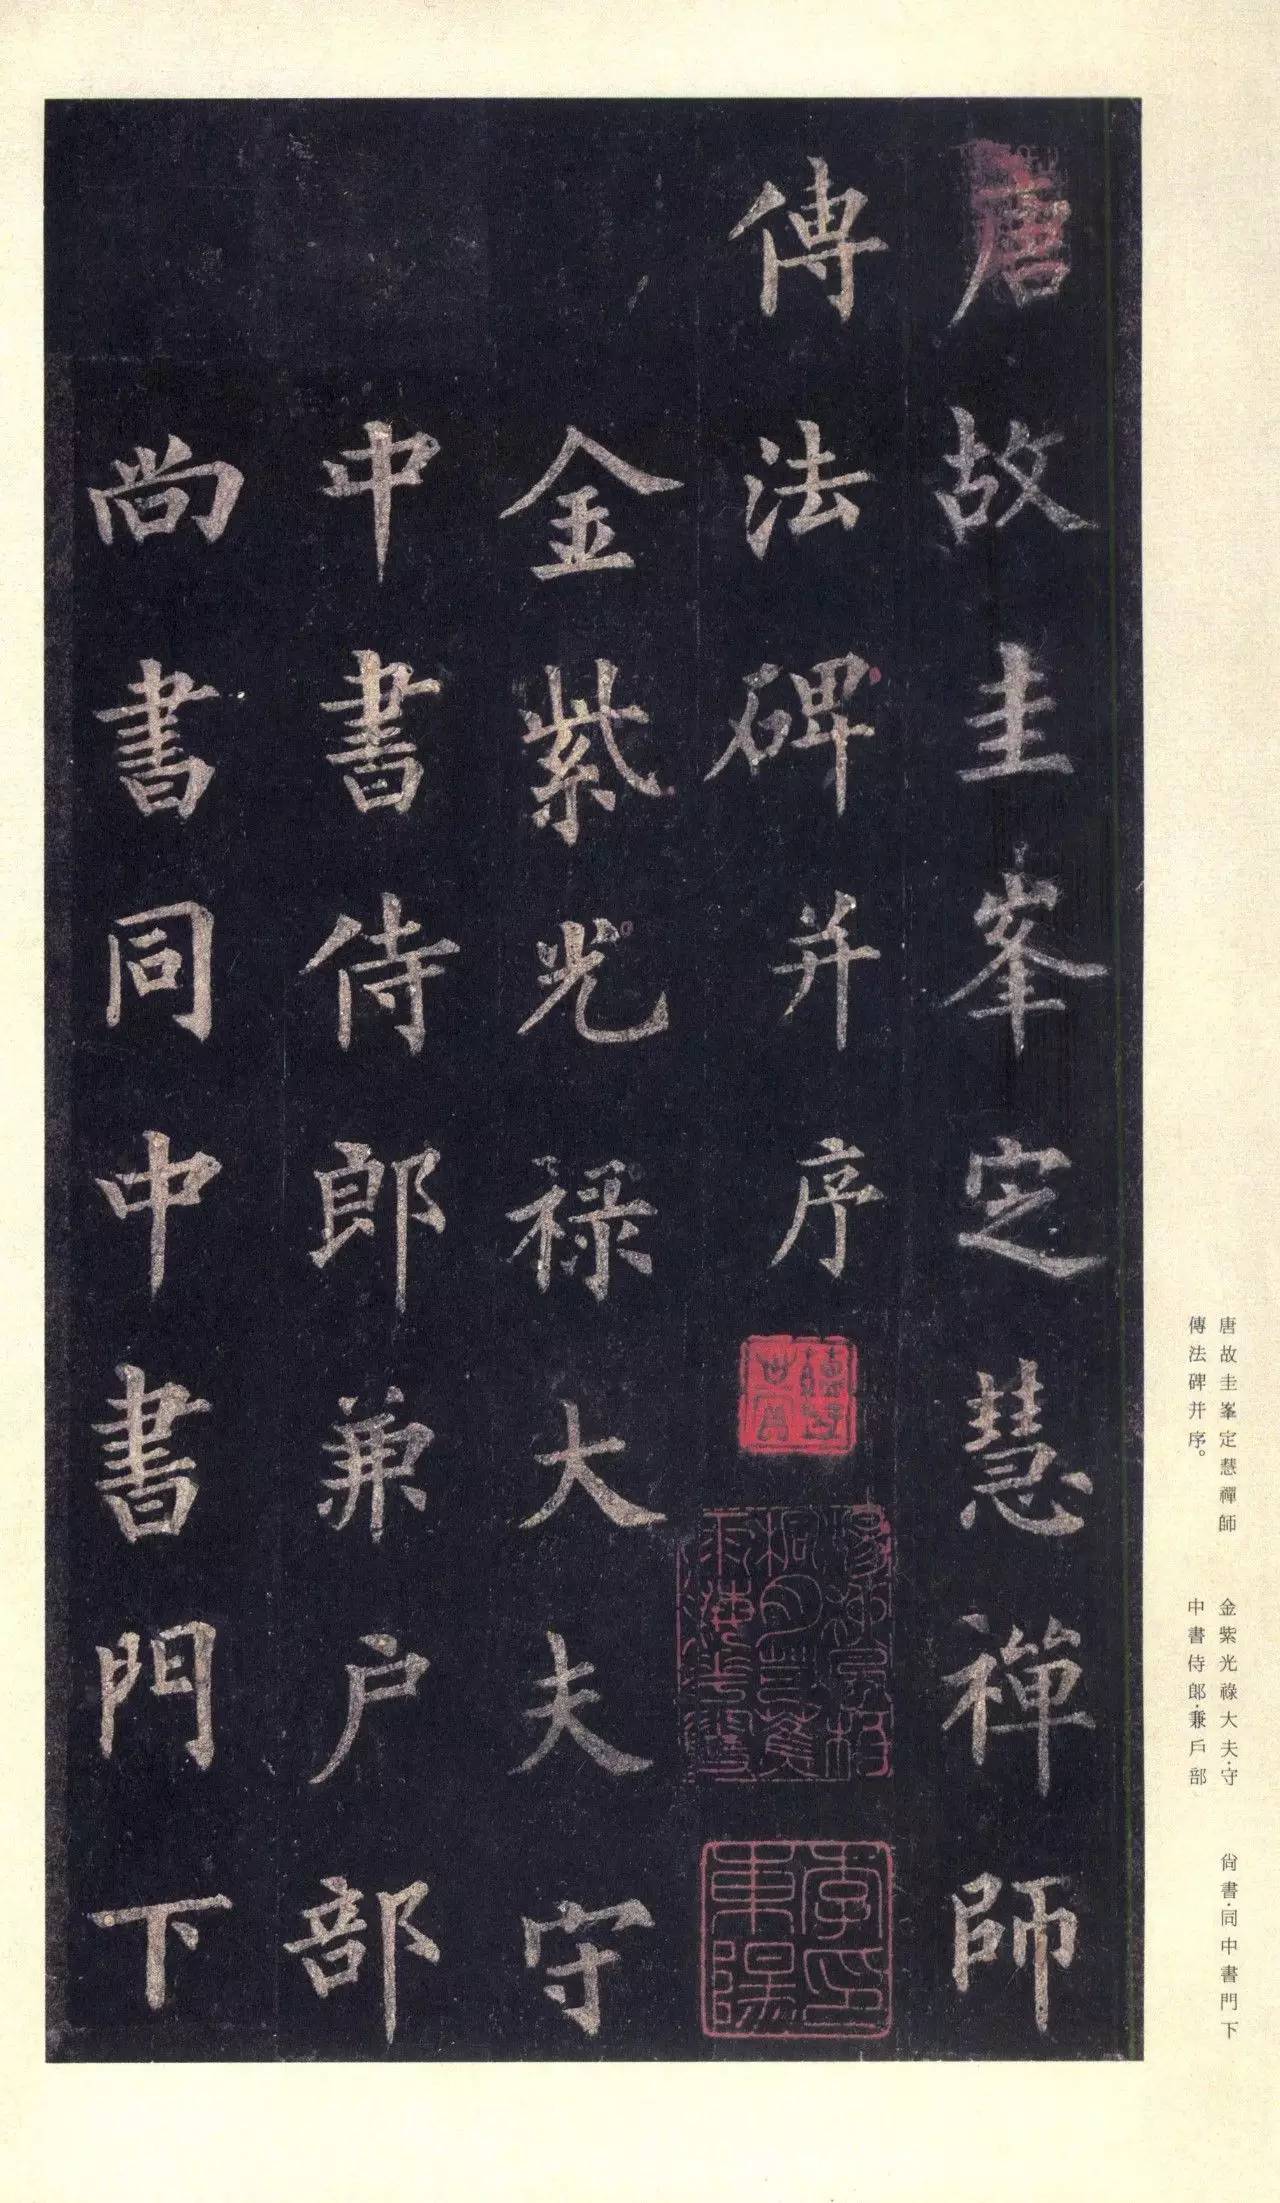 唐故圭峯定慧禪師
傳法碑并序
金紫光祿大夫守
中書侍郎兼户部
尚書同中書門下
李東陽印
唐故圭峯定慧禪師
傳法碑并序。
金紫光祿大夫·守
中書侍郎·兼戶部
尙書·同中書門下